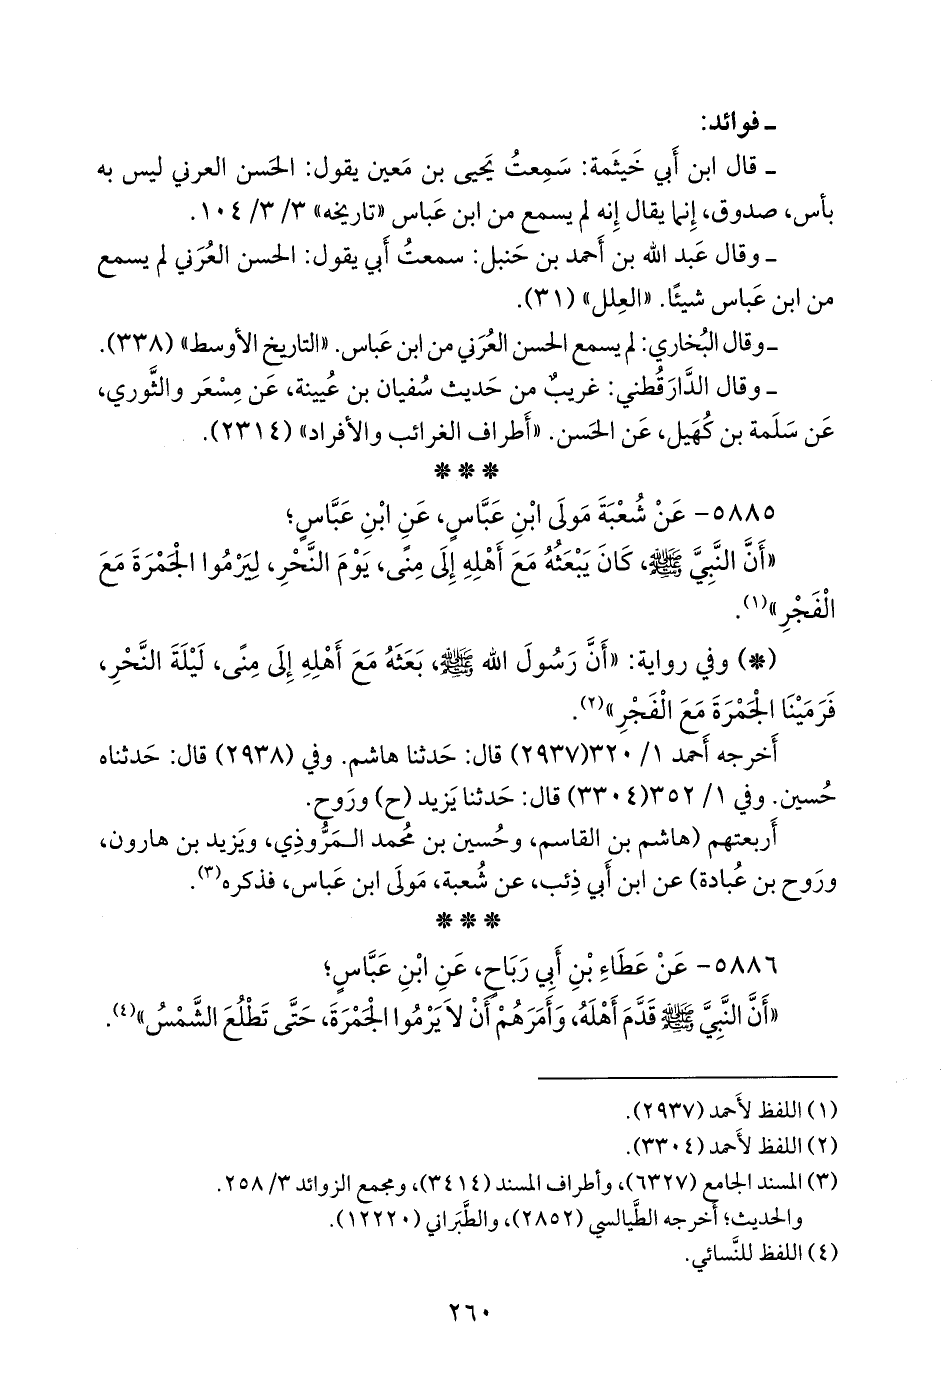 ـ فوائد:
ـ قال ابن أَبي خَيثَمة: سَمِعتُ يَحيى بن مَعين يقول: الحَسن العرني ليس به
بأس، صدوق، إِنما يقال إِنه لم يسمع من ابن عَباس «تاريخه» ٣/ ٣/ ١٠٤.
ـ وقال عَبد الله بن أَحمد بن حَنبل: سمعتُ أَبي يقول: الحسن العُرَني لم يسمع
من ابن عَباس شيئًا. «العِلل» (٣١).
ـ وقال البُخاري: لم يسمع الحسن العُرَني من ابن عَباس. «التاريخ الأَوسط» (٣٣٨).
ـ وقال الدَّارَقُطني: غريبٌ من حَديث سُفيان بن عُيينة، عَن مِسْعَر والثَّوري،
عَن سَلَمة بن كُهَيل، عَن الحَسن. «أَطراف الغرائب والأَفراد» (٢٣١٤).
* * *
٥٨٨٥- عَنْ شُعْبَةَ مَولَى ابْنِ عَبَّاسٍ، عَنِ ابْنِ عَبَّاسٍ؛
«أَنَّ النَّبِيَّ ﷺ، كَانَ يَبْعَثُهُ مَعَ أَهْلِهِ إِلَى مِنًى، يَوْمَ النَّحْرِ، لِيَرْمُوا الْجَمْرَةَ مَعَ
الْفَجْرِ»(١).
(*) وفي رواية: «أَنَّ رَسُولَ الله ﷺ، بَعَثَهُ مَعَ أَهْلِهِ إِلَى مِنًى، لَيْلَةَ النَّحْرِ،
فَرَمَيْنَا الْجَمْرَةَ مَعَ الْفَجْرِ»(٢).
أَخرجه أَحمد ١/ ٣٢٠(٢٩٣٧) قال: حَدثنا هاشم. وفي (٢٩٣٨) قال: حَدثناه
حُسين. وفي ١/ ٣٥٢(٣٣٠٤) قال: حَدثنا يَزيد (ح) ورَوح.
أَربعتهم (هاشم بن القاسم، وحُسين بن مُحمد المَرُّوذِي، ويَزيد بن هارون،
ورَوح بن عُبادة) عن ابن أَبي ذِئب، عن شُعبة، مَولَى ابن عَباس، فذكره(٣).
* * *
٥٨٨٦- عَنْ عَطَاءِ بْنِ أَبِي رَبَاحٍ، عَنِ ابْنِ عَبَّاسٍ؛
«أَنَّ النَّبِيَّ ﷺ قَدَّمَ أَهْلَهُ، وَأَمَرَهُمْ أَنْ لاَ يَرْمُوا الْجَمْرَةَ، حَتَّى تَطْلُعَ الشَّمْسُ»(٤).
(١) اللفظ لأَحمد (٢٩٣٧).
(٢) اللفظ لأَحمد (٣٣٠٤).
(٣) المسند الجامع (٦٣٢٧)، وأطراف المسند (٣٤١٤)، ومجمع الزوائد ٣/ ٢٥٨.
والحديث؛ أَخرجه الطَّيالسي (٢٨٥٢)، والطَّبَراني (١٢٢٢٠).
(٤) اللفظ للنَّسائي.
٢٦٠